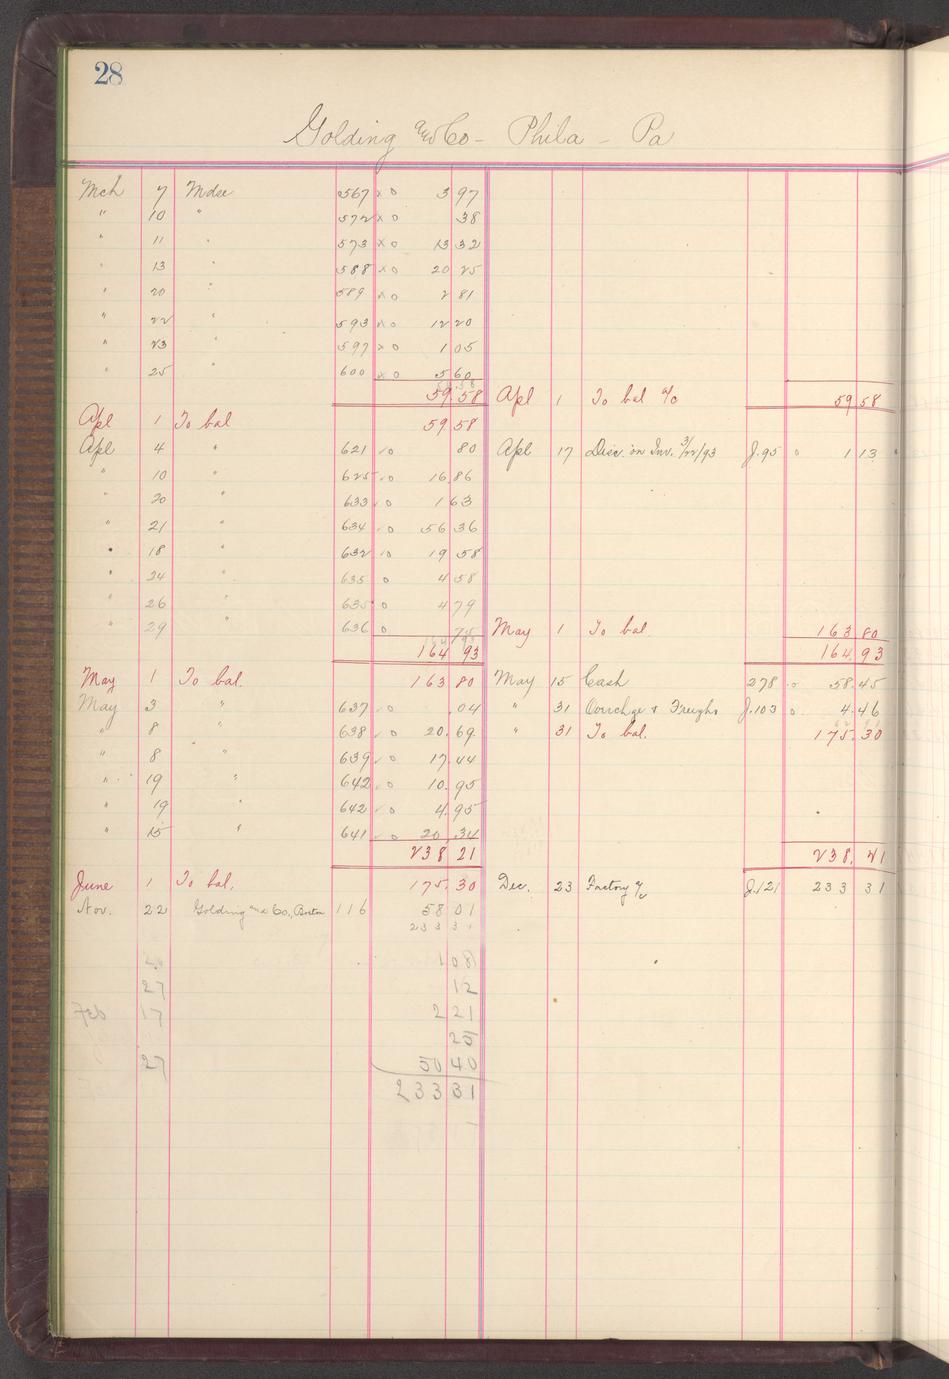 28
Golding and Co - Phila - Pa
Mch 7 Mdse 567 x o 3 97
" 10 " 572 x o 38
" 11 " 573 x o 13 32
" 13 " 588 x o 20 25
" 20 " 589 x o 2 81
" 22 " 593 x o 12 20
" 23 " 597 x o 1 05
" 25 " 600 x o 5 60
59.58
59.58 Apl 1 To bal a/c 59 58
Apl 1 To bal 59 58
Apl 4 " 621 o 80 Apl 17 Disc. on Inv. 3/22/93 J.95 o 1 13
" 10 " 625 o 16 86
" 20 " 633 o 1 63
" 21 " 634 o 56 36
" 18 " 632 o 19 58
" 24 " 635 o 4 58
" 26 " 635 o 4 79
" 29 " 636 o 75 May 1 To bal 163 80
164 93
164 93 164.93
May 1 To bal. 163 80 May 15 Cash 278 o 58.45
May 3 " 637 o .04 " 31 Overchge & Freight J.103 o 4.46
" 8 " 638 o 20.69 " 31 To bal. 175.30
" 8 " 639 o 17.44
" 19 " 642 o 10.95
" 19 " 642 o 4.95
" 15 " 641 o 20.34
238 21 238.21
June 1 To bal. 175.30 Dec. 23 Factory a/c J.121 233 31
Nov. 22 Golding and Co., Boston 116 58 01
233 31
1 08
27 12
Feb 17 2 21
25
27 50 40
233 31